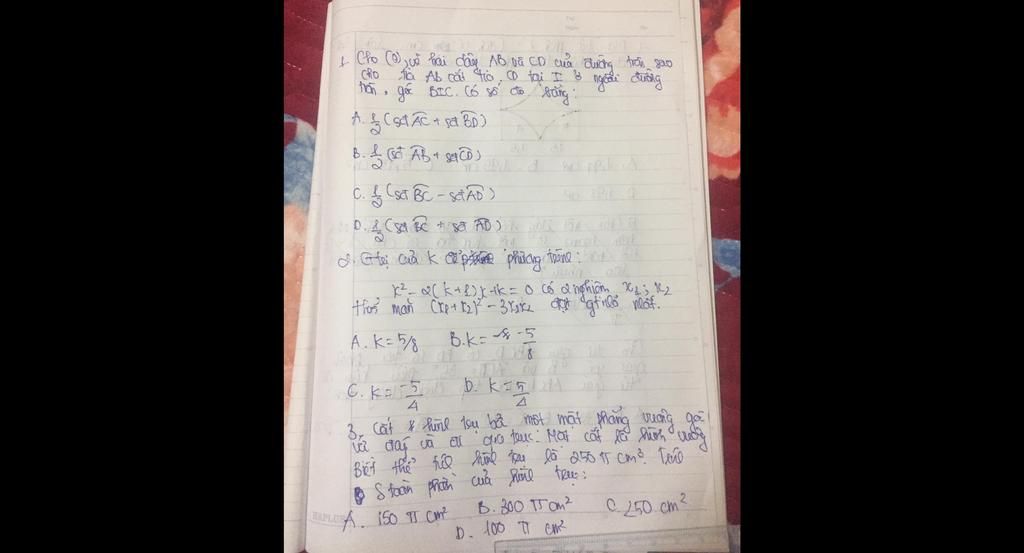 1. Cho (O), vẽ hai dây AB và CD của đường tròn sao
cho tia AB cắt tia CD tại I ở ngoài đường
tròn, góc BIC. Có số đo bằng:
A. 1/2 (sđ AC + sđ BD)
B. 1/2 (sđ AB + sđ CD)
C. 1/2 (sđ BC - sđ AD)
D. 1/2 (sđ BC + sđ AD)
2. Gtrị của k để phương trình:
x² - 2(k+1)x + k = 0 có 2 nghiệm x1; x2
thoả mãn (x1+x2)² - 3x1x2 đạt gt nhỏ nhất.
A. k = 5/8 B. k = -5/8
C. k = -5/4 D. k = 5/4
3. Cắt hình trụ bởi một mặt phẳng vuông góc
với đáy và đi qua trục. Mặt cắt là hình vuông
Biết thể tích hình trụ là 250 π cm³. Tính
S toàn phần của hình trụ:
A. 150 π cm² B. 300 π cm² C. 250 cm²
D. 100 π cm²